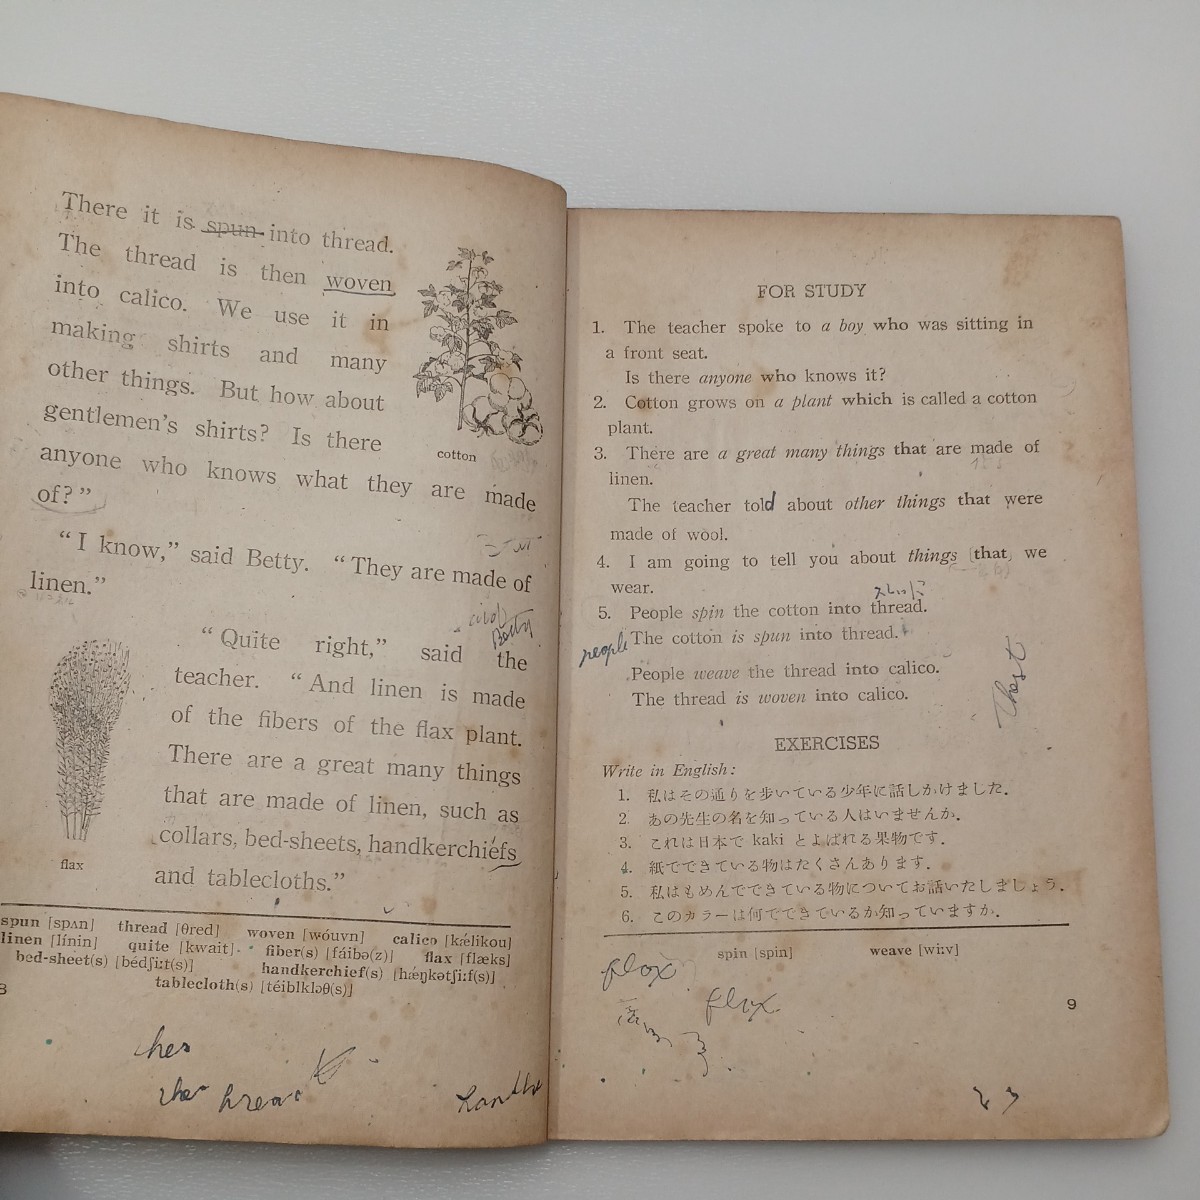 There it is spun into thread.
The thread is then woven
into calico. We use it in
making shirts and many
other things. But how about
gentlemen's shirts? Is there
anyone who knows what they are made
of?"
cotton
"I know," said Betty. "They are made of
linen."
Betty
"Quite right," said the
teacher. "And linen is made
of the fibers of the flax plant.
There are a great many things
that are made of linen, such as
collars, bed-sheets, handkerchiefs
and tablecloths."
flax
spun [spʌn] thread [θred] woven [wóuvn] calico [kǽlikou]
linen [línin] quite [kwait] fiber(s) [fáibə(z)] flax [flæks]
bed-sheet(s) [bédʃi:t(s)] handkerchief(s) [hǽŋkətʃi:f(s)]
tablecloth(s) [téiblklɔθ(s)]
8
FOR STUDY
1. The teacher spoke to a boy who was sitting in
a front seat.
Is there anyone who knows it?
2. Cotton grows on a plant which is called a cotton
plant.
3. There are a great many things that are made of
linen.
The teacher told about other things that were
made of wool.
4. I am going to tell you about things [that] we
wear.
5. People spin the cotton into thread.
people The cotton is spun into thread.
People weave the thread into calico.
The thread is woven into calico.
EXERCISES
Write in English:
1. 私はその通りを歩いている少年に話しかけました.
2. あの先生の名を知っている人はいませんか.
3. これは日本で kaki とよばれる果物です.
4. 紙でできている物はたくさんあります.
5. 私はもめんでできている物についてお話いたしましょう.
6. このカラーは何でできているか知っていますか.
spin [spin] weave [wi:v]
9